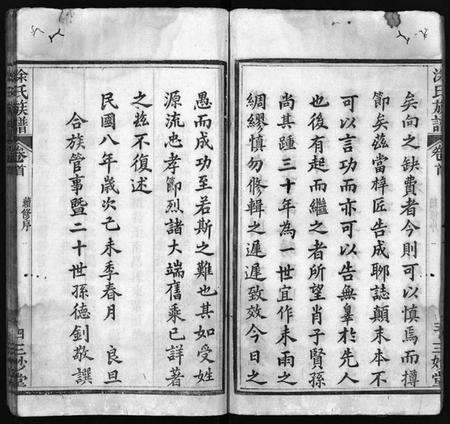 矣向之缺費者今則可以慎焉而樽
節矣茲當梓匠告成聊誌顛末本不
可以言功而亦可以告無辜於先人
也後有起而繼之者所望肖子賢孫
尚其踵三十年為一世宜作未雨之
綢繆慎勿脩輯之遲遲致效今日之
愚而成功至若斯之難也其如受姓
源流忠孝節烈諸大端舊乘已詳著
之茲不復述
民國八年歲次己未季春月 良旦
合族管事暨二十世孫德釗敬譔
涂氏族譜
卷首
續修序
涂氏族譜
卷首